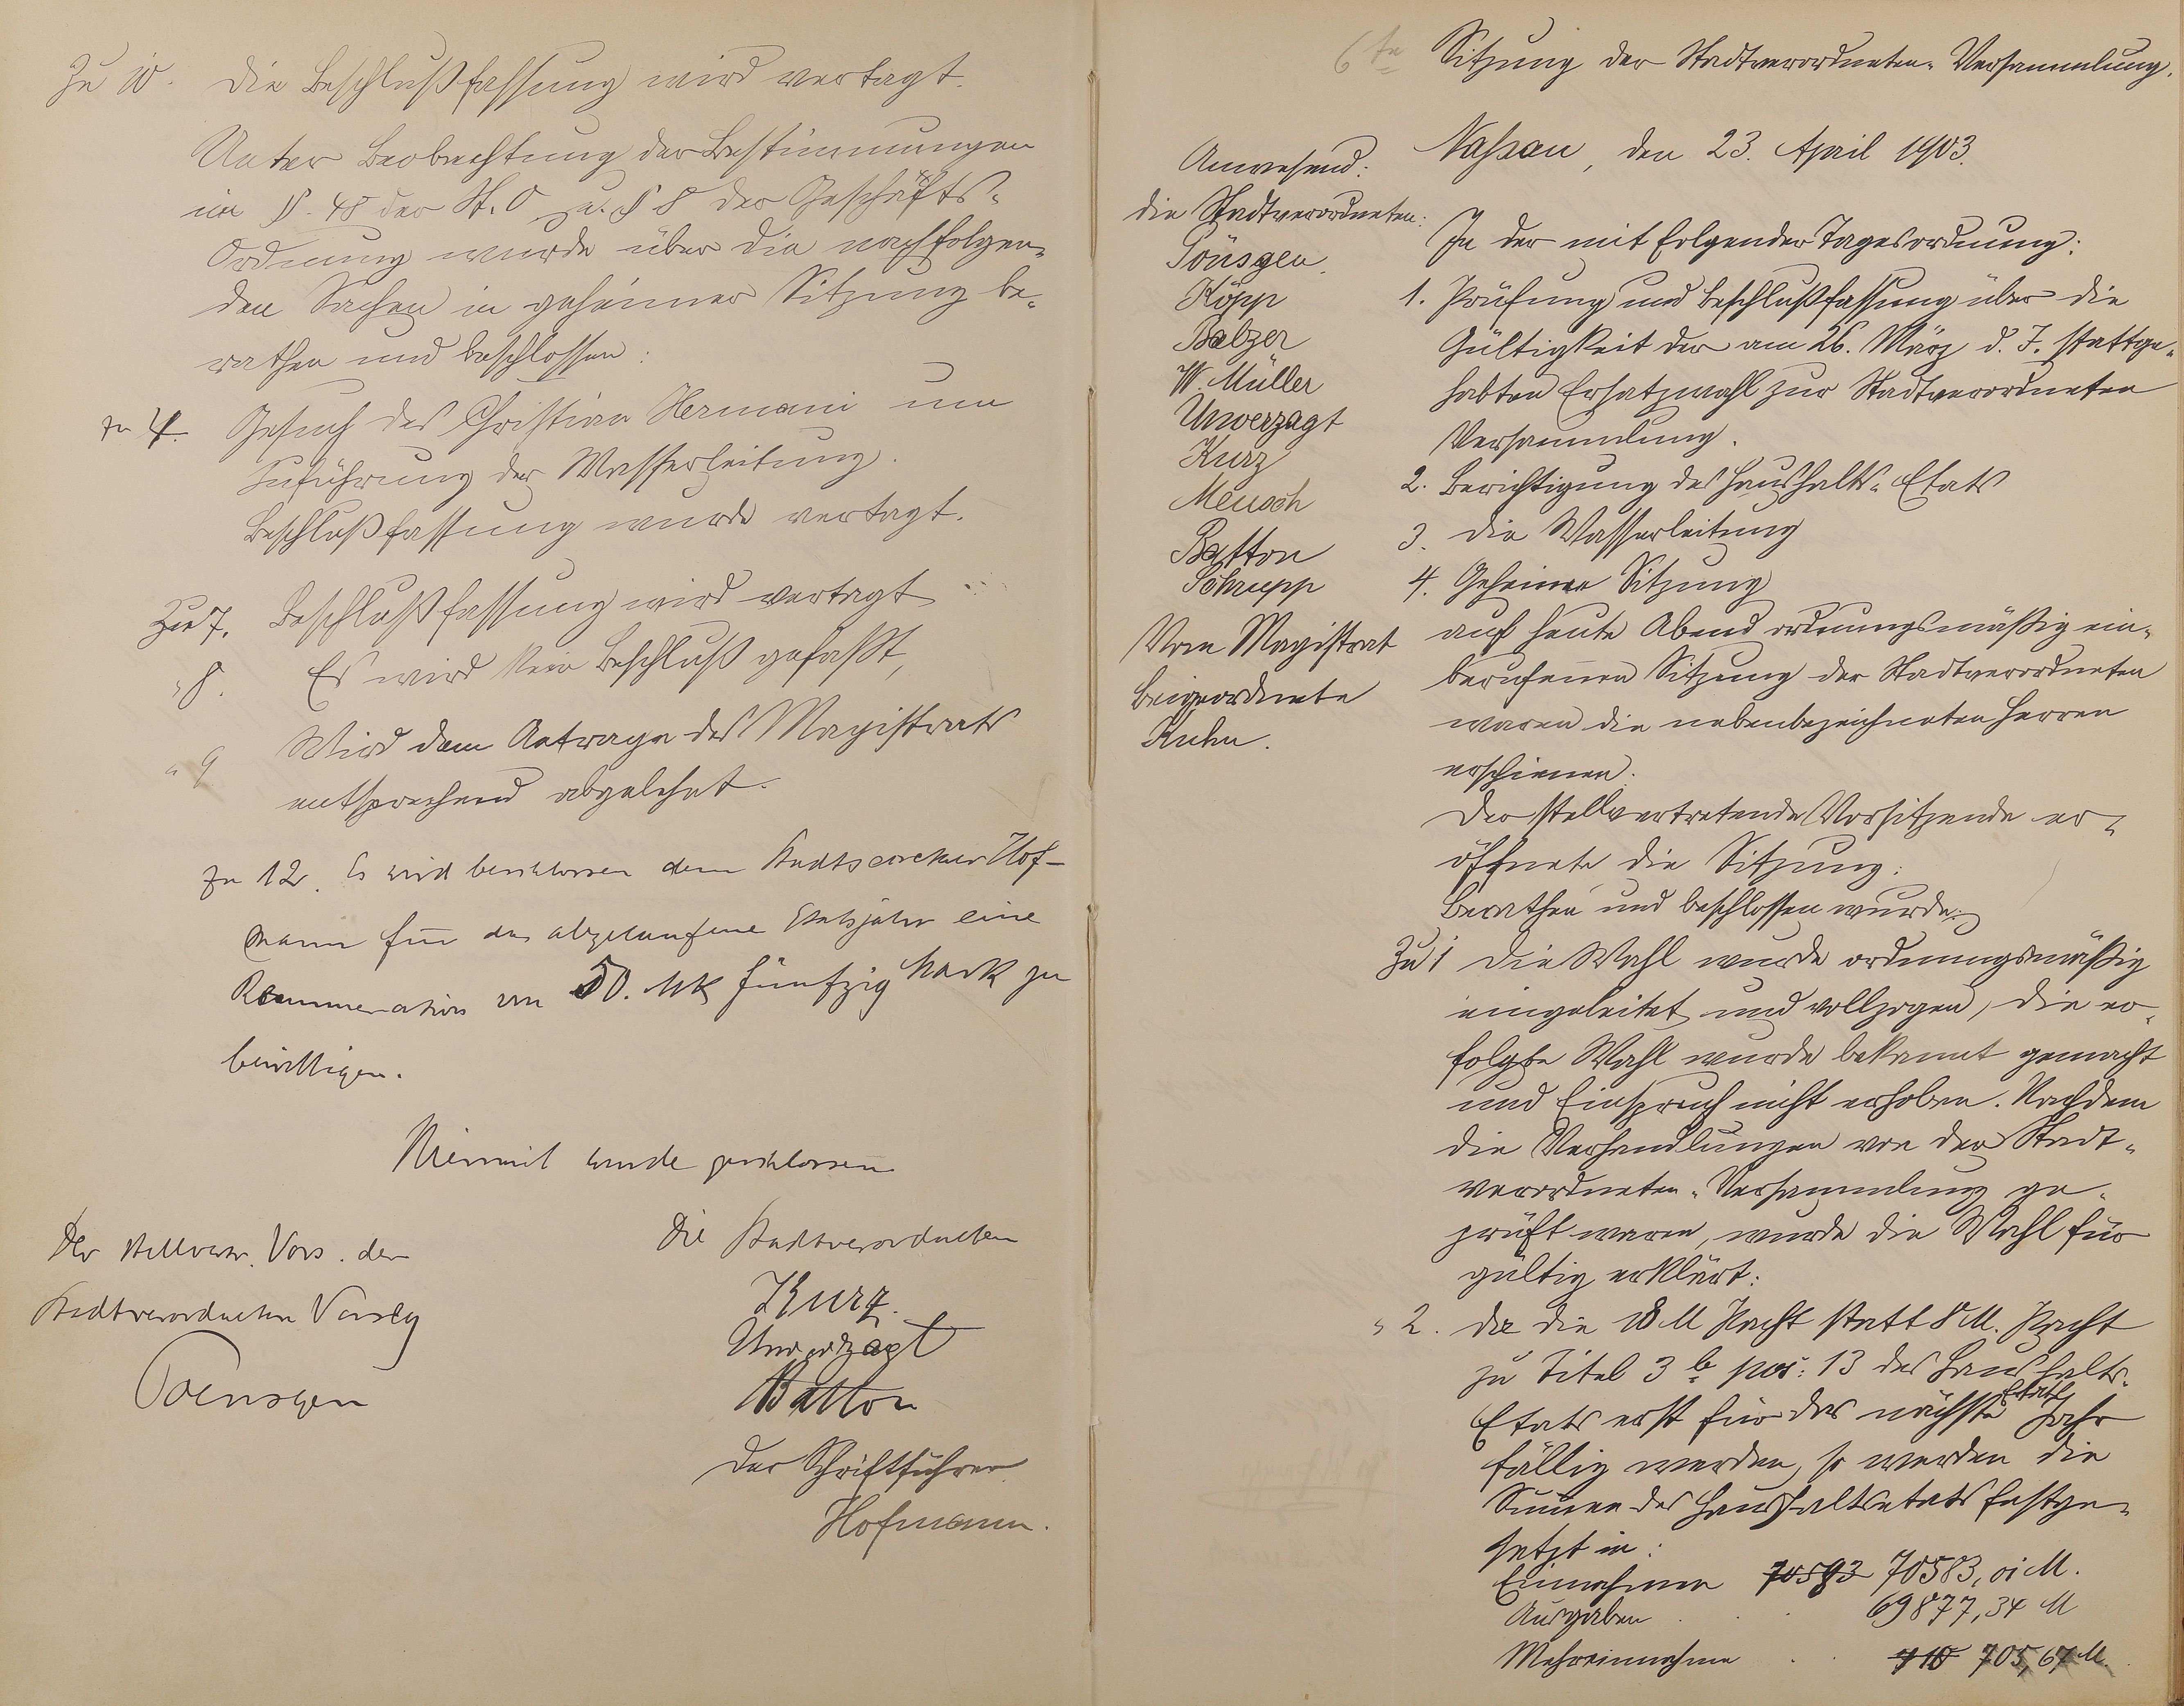 Zu 10. Die Beschlußfassung wird vertagt.
Unter Beobachtung der Bestimmungen
im §. 48 der St. O u. § 8 der Geschäfts-
Ordnung wurde über die nachfolgen-
den Sachen in geheimer Sitzung be-
rathen und beschlossen:
zu 4. Gesuch des Christian Hermani um
Zuführung der Wasserleitung.
Beschlußfassung wurde vertagt.
Zu 7. Beschlußfassung wird vertagt
" 8. Es wird kein Beschluß gefaßt,
" 9 Wird dem Antrage des Magistrats
entsprechend abgelehnt.
zu 12. Es wird beschlossen dem Stadtsecretair Hof-
mann für das abgelaufene Etatsjahr eine
Remuneration von 50. Mk fünfzig Mark zu
bewilligen.
Hiermit wurde geschlossen
Der stellvertr. Vors. der
Stadtverordneten Verslg
Toensgen
Die Stadtverordneten
Kurz.
Unverzagt
Batton
Der Schriftführer
Hofmann.
6te Sitzung der Stadtverordneten-Versammlung.
Nassau, den 23. April 1903.
Anwesend:
die Stadtverordneten:
Tönsgen.
Köpp
Balzer
W. Müller
Unverzagt
Kurz
Meusch
Batton
Schrupp
Vom Magistrat
Beigeordnete
Kuhn.
In der mit folgender Tagesordnung:
1. Prüfung und Beschlußfassung über die
Gültigkeit der am 26. März d. J. stattge-
habten Ersatzwahl zur Stadtverordneten
Versammlung.
2. Berichtigung des Haushalts-Etats
3. Die Wasserleitung
4. Geheime Sitzung
auf heute Abend ordnungsmäßig ein-
berufenen Sitzung der Stadtverordneten
waren die nebenbezeichneten Herren
erschienen.
Der stellvertretende Vorsitzende er-
öffnete die Sitzung:
Berathen und beschlossen wurde:
Zu 1 Die Wahl wurde ordnungsmäßig
eingeleitet und vollzogen, die er-
folgte Wahl wurde bekannt gemacht
und Einspruch nicht erhoben. Nachdem
die Verhandlungen von der Stadt-
verordneten-Versammlung ge-
prüft waren, wurde die Wahl für
gültig erklärt:
" 2. Da die 10 M Pacht statt 8 M. Pacht
zu Titel 3 b pos: 13 des Haushalts-
Etats erst für das nächste Etats Jahr
fällig werden, so werden die
Summe des Haushaltsetats festge-
setzt in:
Einnahmen 70593 70583,01 M.
Ausgaben . . . 69877,34 M
Mehreinnahme . . 710 705,67 M.